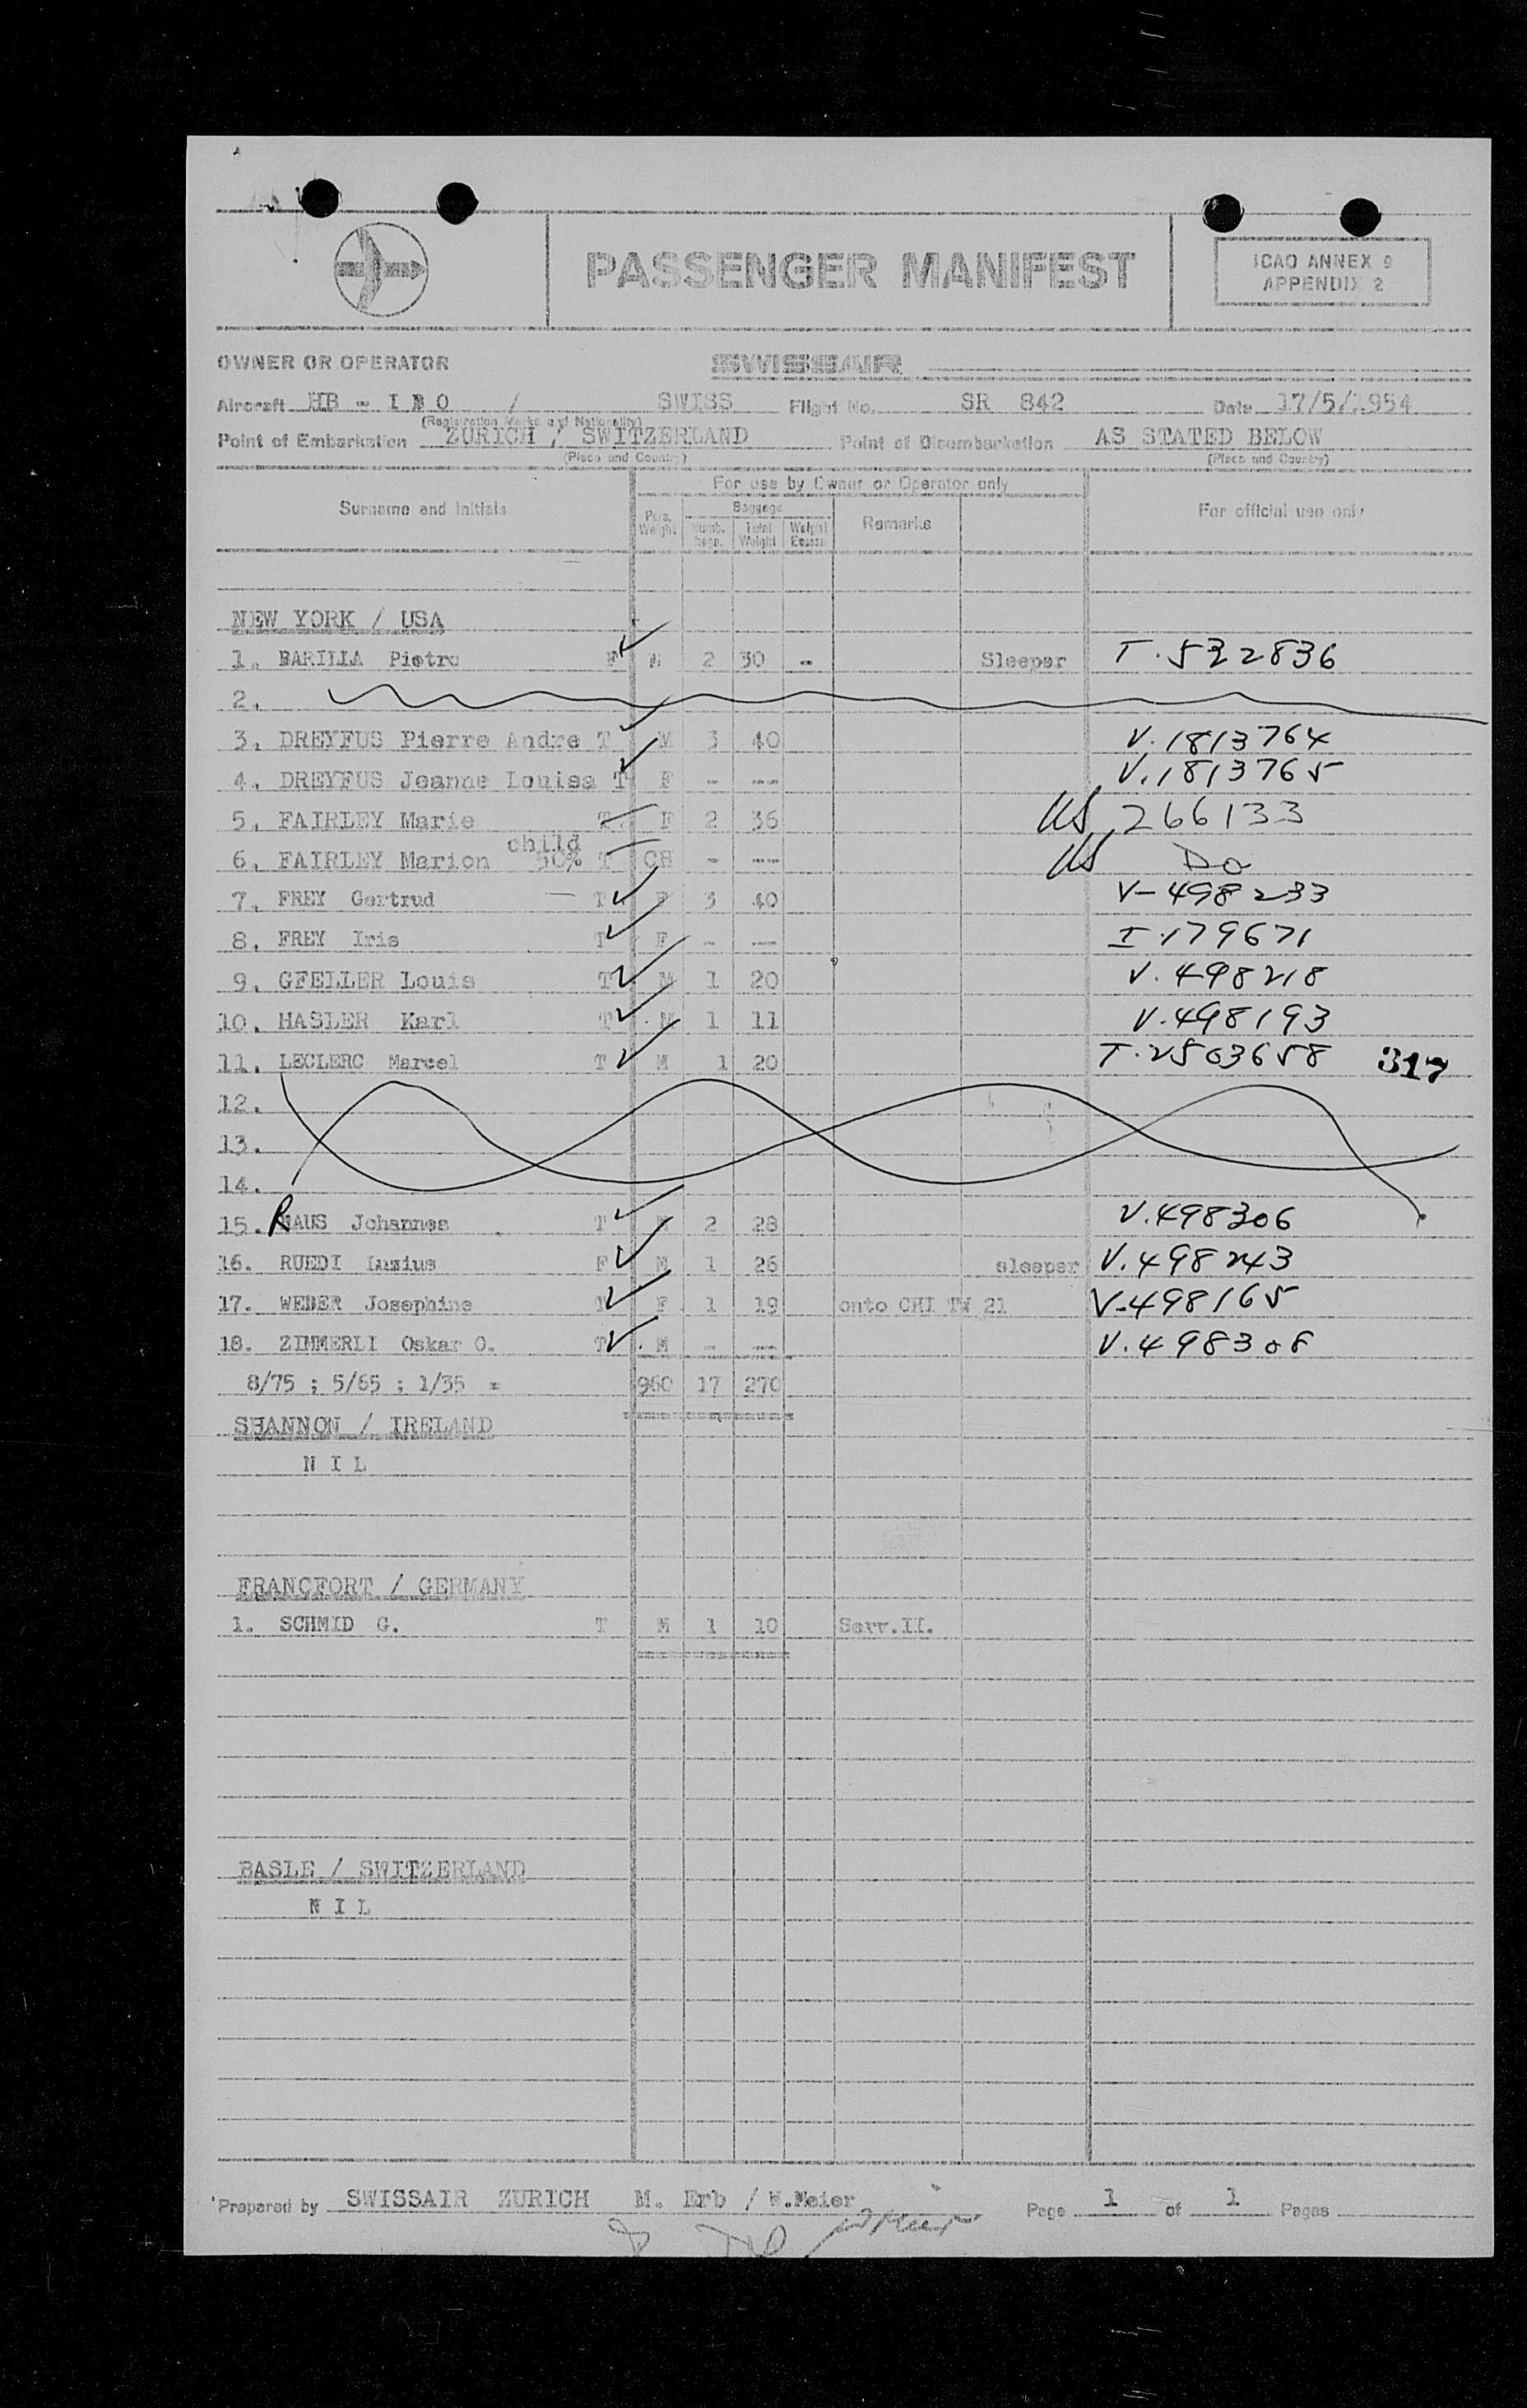 PASSENGER MANIFEST
ICAO ANNEX 9
APPENDIX 2
OWNER OR OPERATOR SWISSAIR
Aircraft HB - I O / SWISS Flight No. SR 842 Date 17/5/1954
(Registration Marks and Nationality)
Point of Embarkation ZURICH / SWITZERLAND Point of Disembarkation AS STATED BELOW
(Place and Country) (Place and Country)
For use by Owner or Operator only
Surname and initials Pers. Weight Baggage Numb. Total Weight Weight Excess Remarks For official use only
NEW YORK / USA
1. BARILLA Pietro F M 2 30 -- Sleeper T.522836
2.
3. DREYFUS Pierre Andre T M 3 40 V.1813764
4. DREYFUS Jeanne Louisa T F - --- V.1813765
5. FAIRLEY Marie T. F 2 36 US 266133
child
6. FAIRLEY Marion 50% T CH - --- US Do
7. FREY Gertrud T F 3 40 V-498233
8. FREY Iris T F - --- I.179671
9. GFELLER Louis T M 1 20 V.498218
10. HASLER Karl T M 1 11 V.498193
11. LECLERC Marcel T M 1 20 T.2503658 317
12.
13.
14.
15. RAUS Johannes T M 2 28 V.498306
16. RUEDI Luzius F M 1 26 sleeper V.498243
17. WEBER Josephine T F 1 19 onto CHI TW 21 V-498165
18. ZIMMERLI Oskar O. T M - --- V.498308
8/75 ; 5/65 ; 1/35 = 960 17 270
SHANNON / IRELAND
N I L
FRANCFORT / GERMANY
1. SCHMID G. T M 1 10 Serv.II.
BASLE / SWITZERLAND
N I L
Prepared by SWISSAIR ZURICH M. Erb / W.Meier Page 1 of 1 Pages